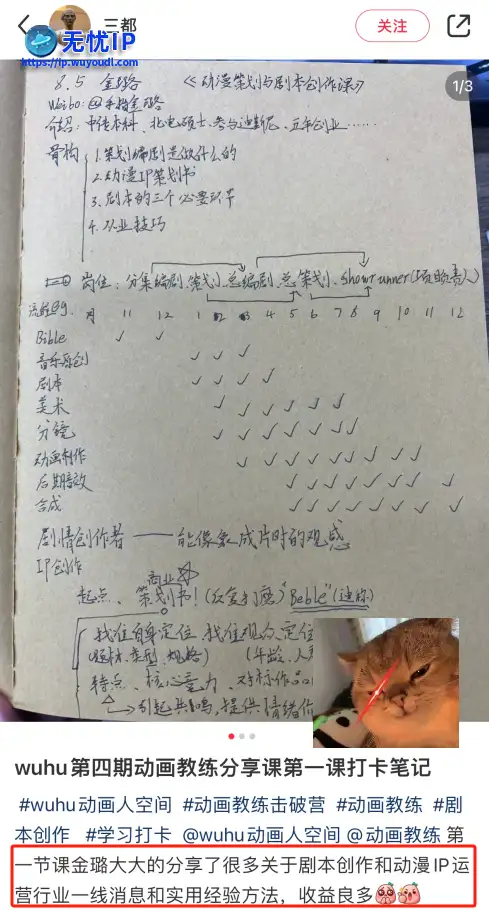 三都
关注
无忧IP
https://ip.wuyoudl.com
1/3
8.5 金璐 《动漫策划与剧本创作课》
Weibo:@手指金璐
介绍:中传本科、北电硕士、参与迪斯尼、五年创业……
骨构 1.策划编剧是做什么的
2.动漫IP策划书
3.剧本的三个必要环节
4.从业技巧
岗位:分集编剧、策划、总编剧、总策划、showrunner(项目负责人)
流程eg. 月 11 12 1 2 3 4 5 6 7 8 9 10 11 12
Bible ✓ ✓
音乐原创 ✓ ✓ ✓
剧本 ✓ ✓ ✓ ✓
美术 ✓ ✓ ✓ ✓ ✓ ✓
分镜 ✓ ✓ ✓ ✓ ✓ ✓ ✓
动画制作 ✓ ✓ ✓ ✓ ✓ ✓ ✓ ✓
后期音效 ✓ ✓ ✓ ✓ ✓ ✓ ✓
合成 ✓ ✓ ✓ ✓ ✓ ✓ ✓
剧情创作者 —— 能像象成片时的观感
IP创作
商业
起点、策划书!(反复打磨)"Beble"(迪称)
找准自身定位 找准观众定位
(题材、类型、规格) (年龄、人
特点、核心竞争力、对标作品
引起共鸣,提供情绪价
wuhu第四期动画教练分享课第一课打卡笔记
#wuhu动画人空间 #动画教练击破营 #动画教练 #剧
本创作 #学习打卡 @wuhu动画人空间 @动画教练 第
一节课金璐大大的分享了很多关于剧本创作和动漫IP运
营行业一线消息和实用经验方法，收益良多